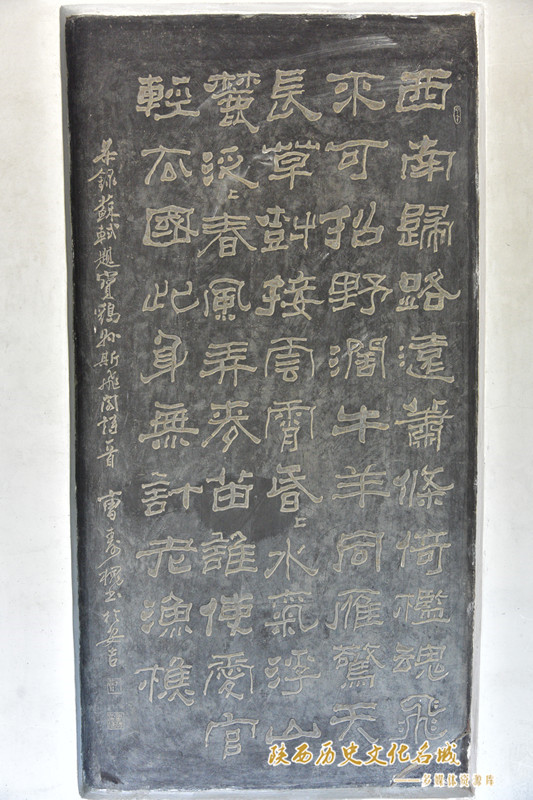 西南歸路遠蕭條倚檻魂飛
不可招野濶牛羊同雁鶩天
長草尌接雲霄昏〻水氣浮山
麓泛〻春風弄麥苗誰使愛官
輕去國此身無計老漁樵
錄蘇軾題寶鷄縣斯飛閣詩一首 曹
陕西历史文化名城
——多媒体资源库